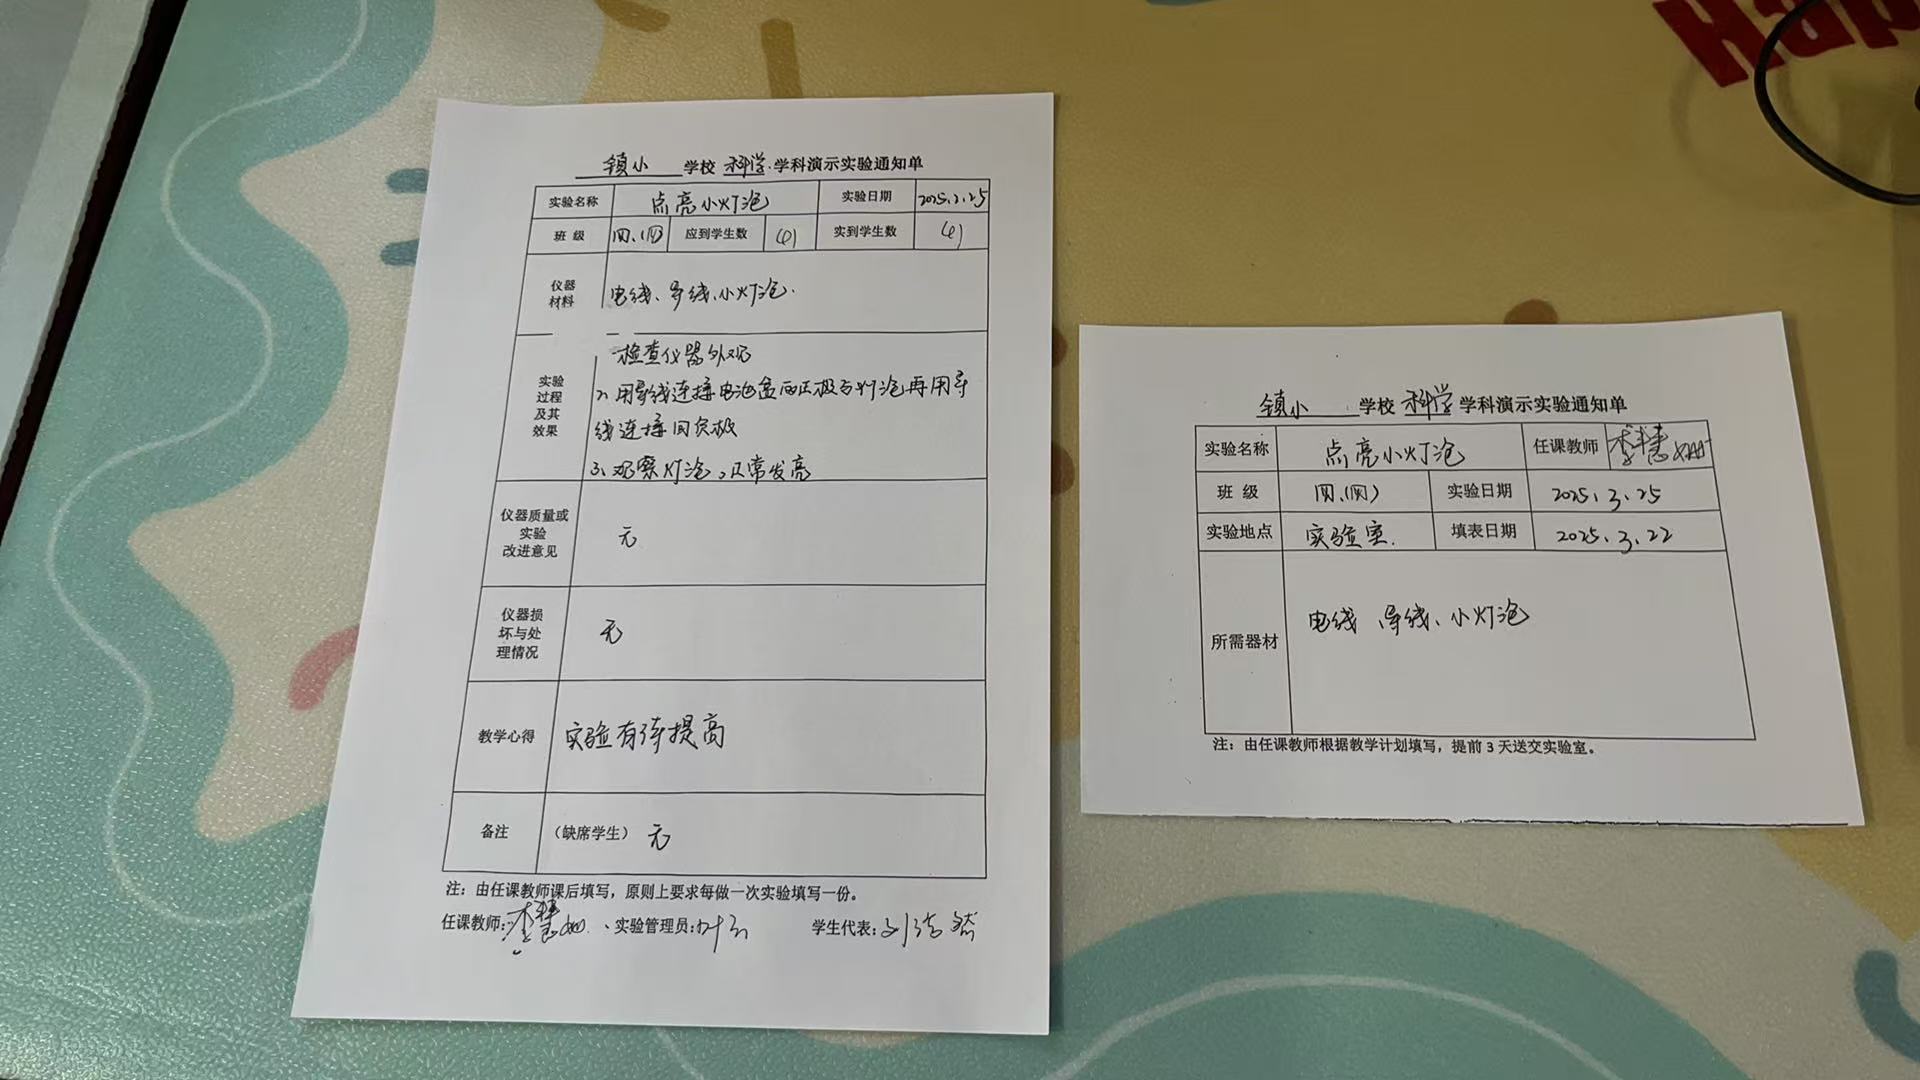 镇小 学校 科学 学科演示实验通知单
实验名称 点亮小灯泡 实验日期 2025.3.25
班 级 四.(四) 应到学生数 41 实到学生数 41
仪器
材料
电线、导线、小灯泡.
实验
过程
及其
效果
检查仪器外观
2、用导线连接电池盒的正极与灯泡再用导
线连接回负极
3、观察灯泡,正常发亮
仪器质量或
实验
改进意见
无
仪器损
坏与处
理情况
无
教学心得 实验有待提高
备注 （缺席学生） 无
注：由任课教师课后填写，原则上要求每做一次实验填写一份。
任课教师: 李慧 、实验管理员: 学生代表: 刘浩然
Hap
镇小 学校 科学 学科演示实验通知单
实验名称 点亮小灯泡 任课教师 李慧
班 级 四.(四) 实验日期 2025.3.25
实验地点 实验室. 填表日期 2025.3.22
所需器材 电线、导线、小灯泡
注：由任课教师根据教学计划填写，提前 3 天送交实验室。